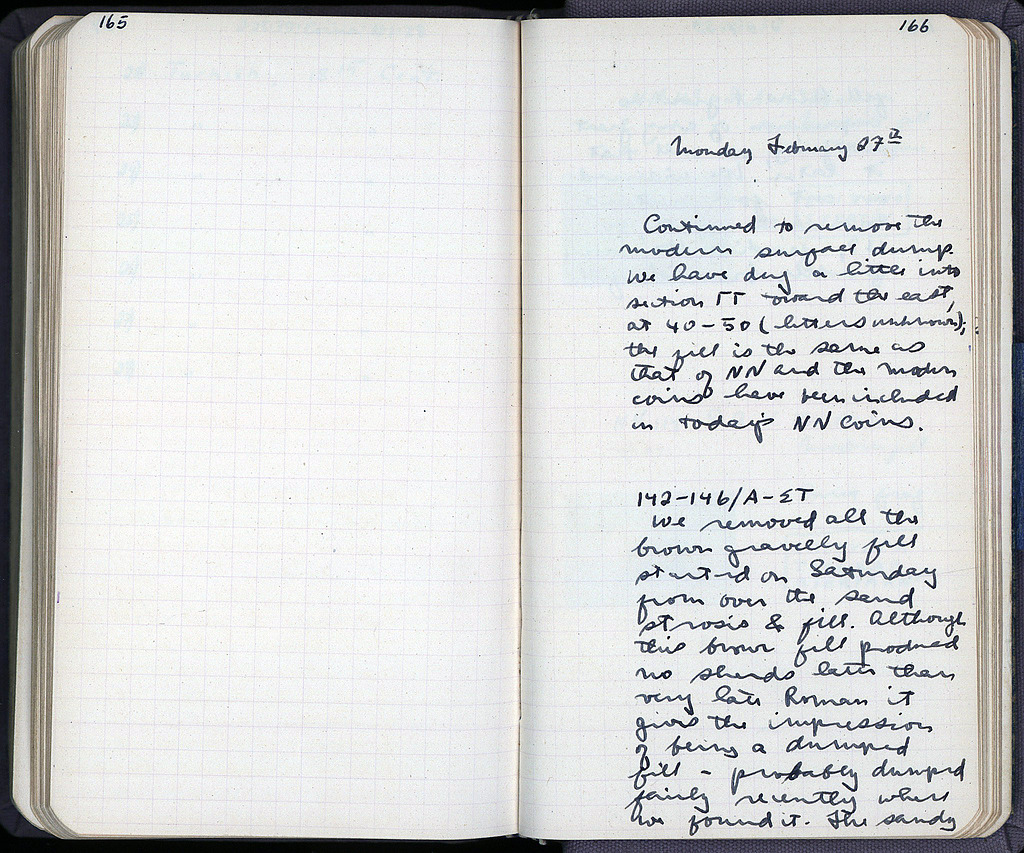 165
166
Monday February 27th
Continued to remove the
modern surface dump.
We have dug a little into
section ΓΓ toward the east,
at 40-50 (letters unknown);
the fill is the same as
that of NN and the modern
coins have been included
in today's NN coins.
142-146/A-ΣΤ
We removed all the
brown gravelly fill
started on Saturday
from over the sand
strosis & fill. Although
this brown fill produced
no sherds later than
very late Roman it
gives the impression
of being a dumped
fill - probably dumped
fairly recently where
we found it. The sandy